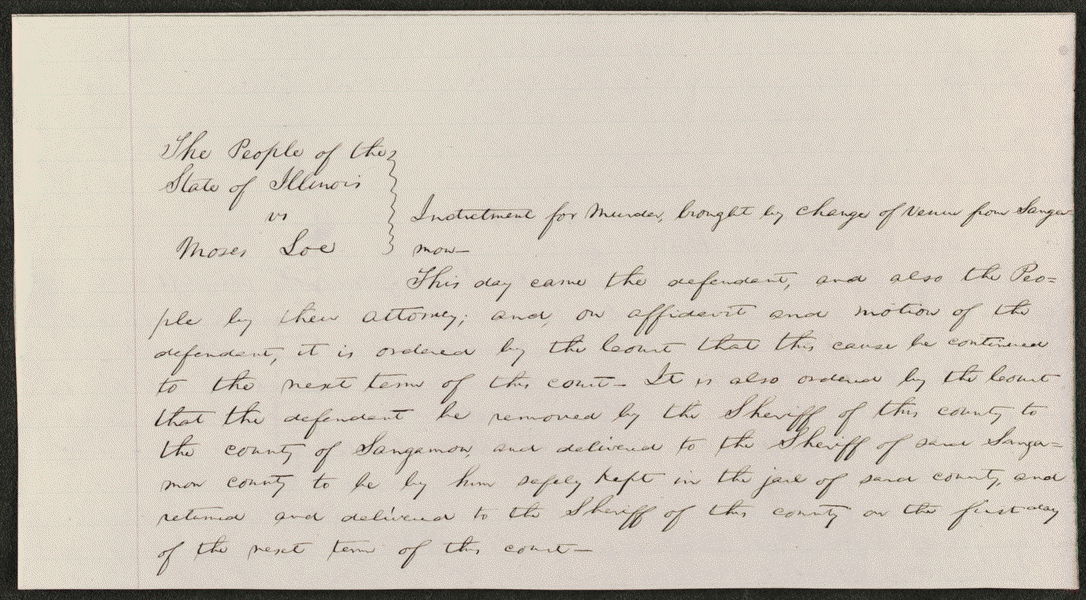 The People of the
State of Illinois
vs
Moses Loe
Indictment for Murder, brought by change of venue from Sanga-
mon—
This day came the defendant, and also the Peo=
ple by their attorney; and, on affidavit and motion of the
defendant, it is ordered by the Court that this cause be continued
to the next term of this court— It is also ordered by the Court
that the defendant be removed by the Sheriff of this county to
the county of Sangamon, and delivered to the Sheriff of said Sanga=
mon county to be by him safely kept in the jail of said county, and
returned and delivered to the Sheriff of this county on the first day
of the next term of this court—